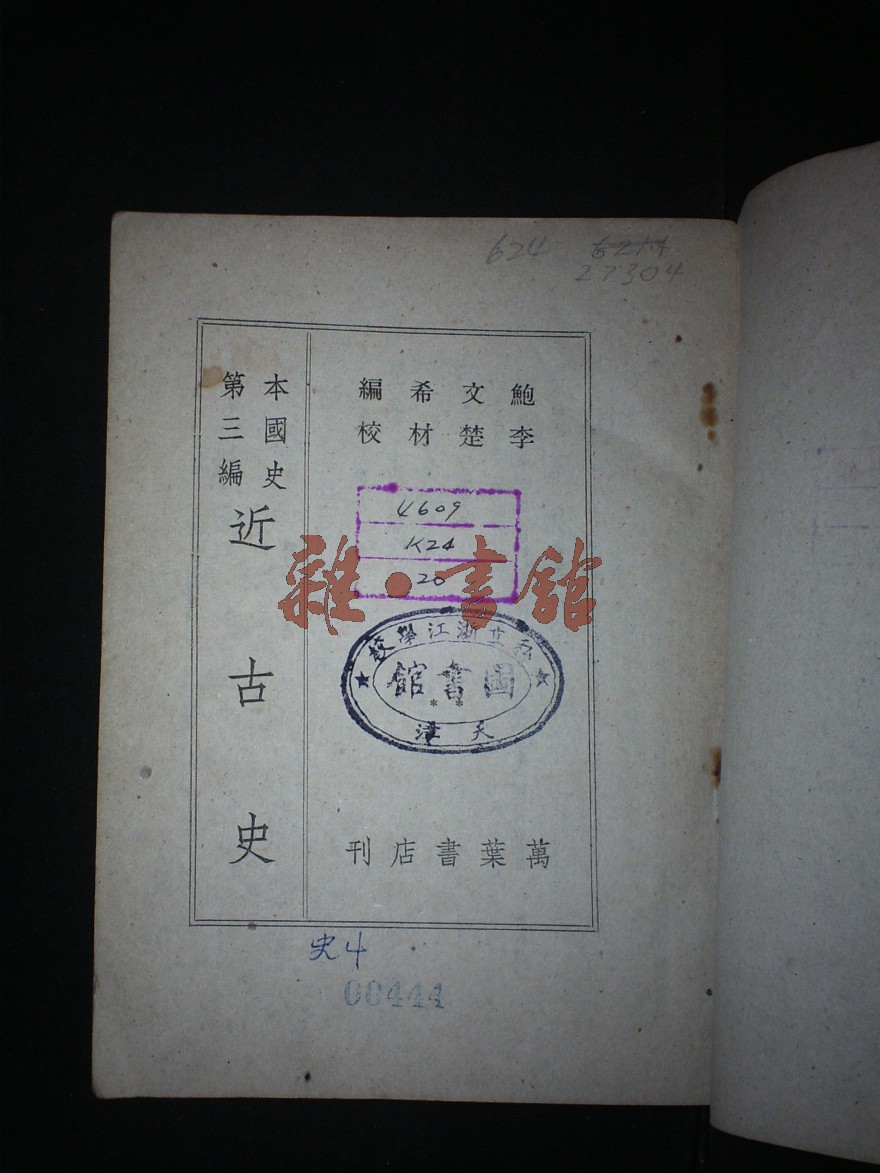 624 6211
27304
鮑文希編
李楚材校
本國史
第三編
近古史
4609
K24
20
雜·書館
私立浙江學校
圖書館
天津
萬葉書店刊
史4
00444